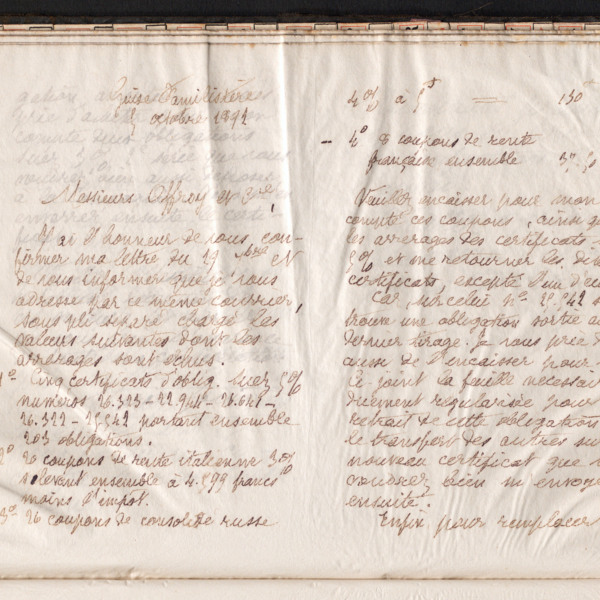 Guise Familistère
5 octobre 1892
Messieurs Offroy et Cie,
J'ai l'honneur de vous con-
firmer ma lettre du 19 7bre et
de vous informer que je vous
adresse par ce même courrier,
sous pli séparé chargé les
valeurs suivantes dont les
arrérages sont échus.
1o Cinq certificats d'oblig. Suez 5%
numéros 26.323 - 22.944 - 26.641 -
26.322 - 25.942 portant ensemble
203 obligations.
2o 20 coupons de rente italienne 5%
s'élevant ensemble à 4.899 francs
moins l'impôt.
3o 26 coupons de consolidé russe
4% à 5f = 130f
4o 8 coupons de rente
française ensemble
Veuillez encaisser pour mon
compte ces coupons, ainsi que
les arrérages des certificats
5% et me retourner les dits
certificats, excepté l'un d'eux
Car, sur celui no 25.942 se
trouve une obligation sortie au
dernier tirage. Je vous prie de
aussi de l'encaisser pour
Ci joint la feuille nécessaire
dûment régularisée pour
retrait de cette obligation
le transport des autres sur
nouveau certificat que
voudrez bien m'envoyer
ensuite.
Enfin pour remplacer